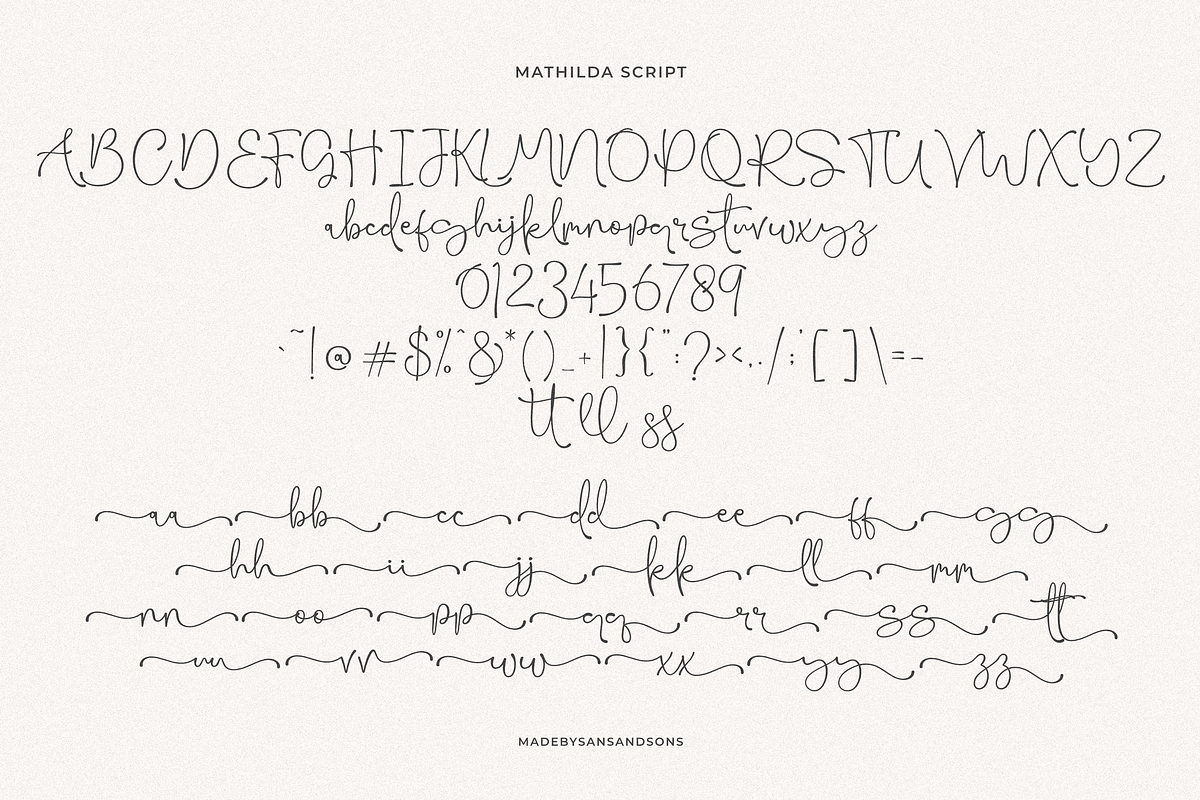 MATHILDA SCRIPT
ABCDEFGHIJKLMNOPQRSTUVWXYZ
abcdefghijklmnopqrstuvwxyz
0123456789
`~!@#$%^&*()_+|}{":?><,./;'[]\=-
tt ll ss
aa bb cc dd ee ff gg
hh ii jj kk ll mm
nn oo pp qq rr ss tt
uu vv ww xx yy zz
MADEBYSANSANDSONS